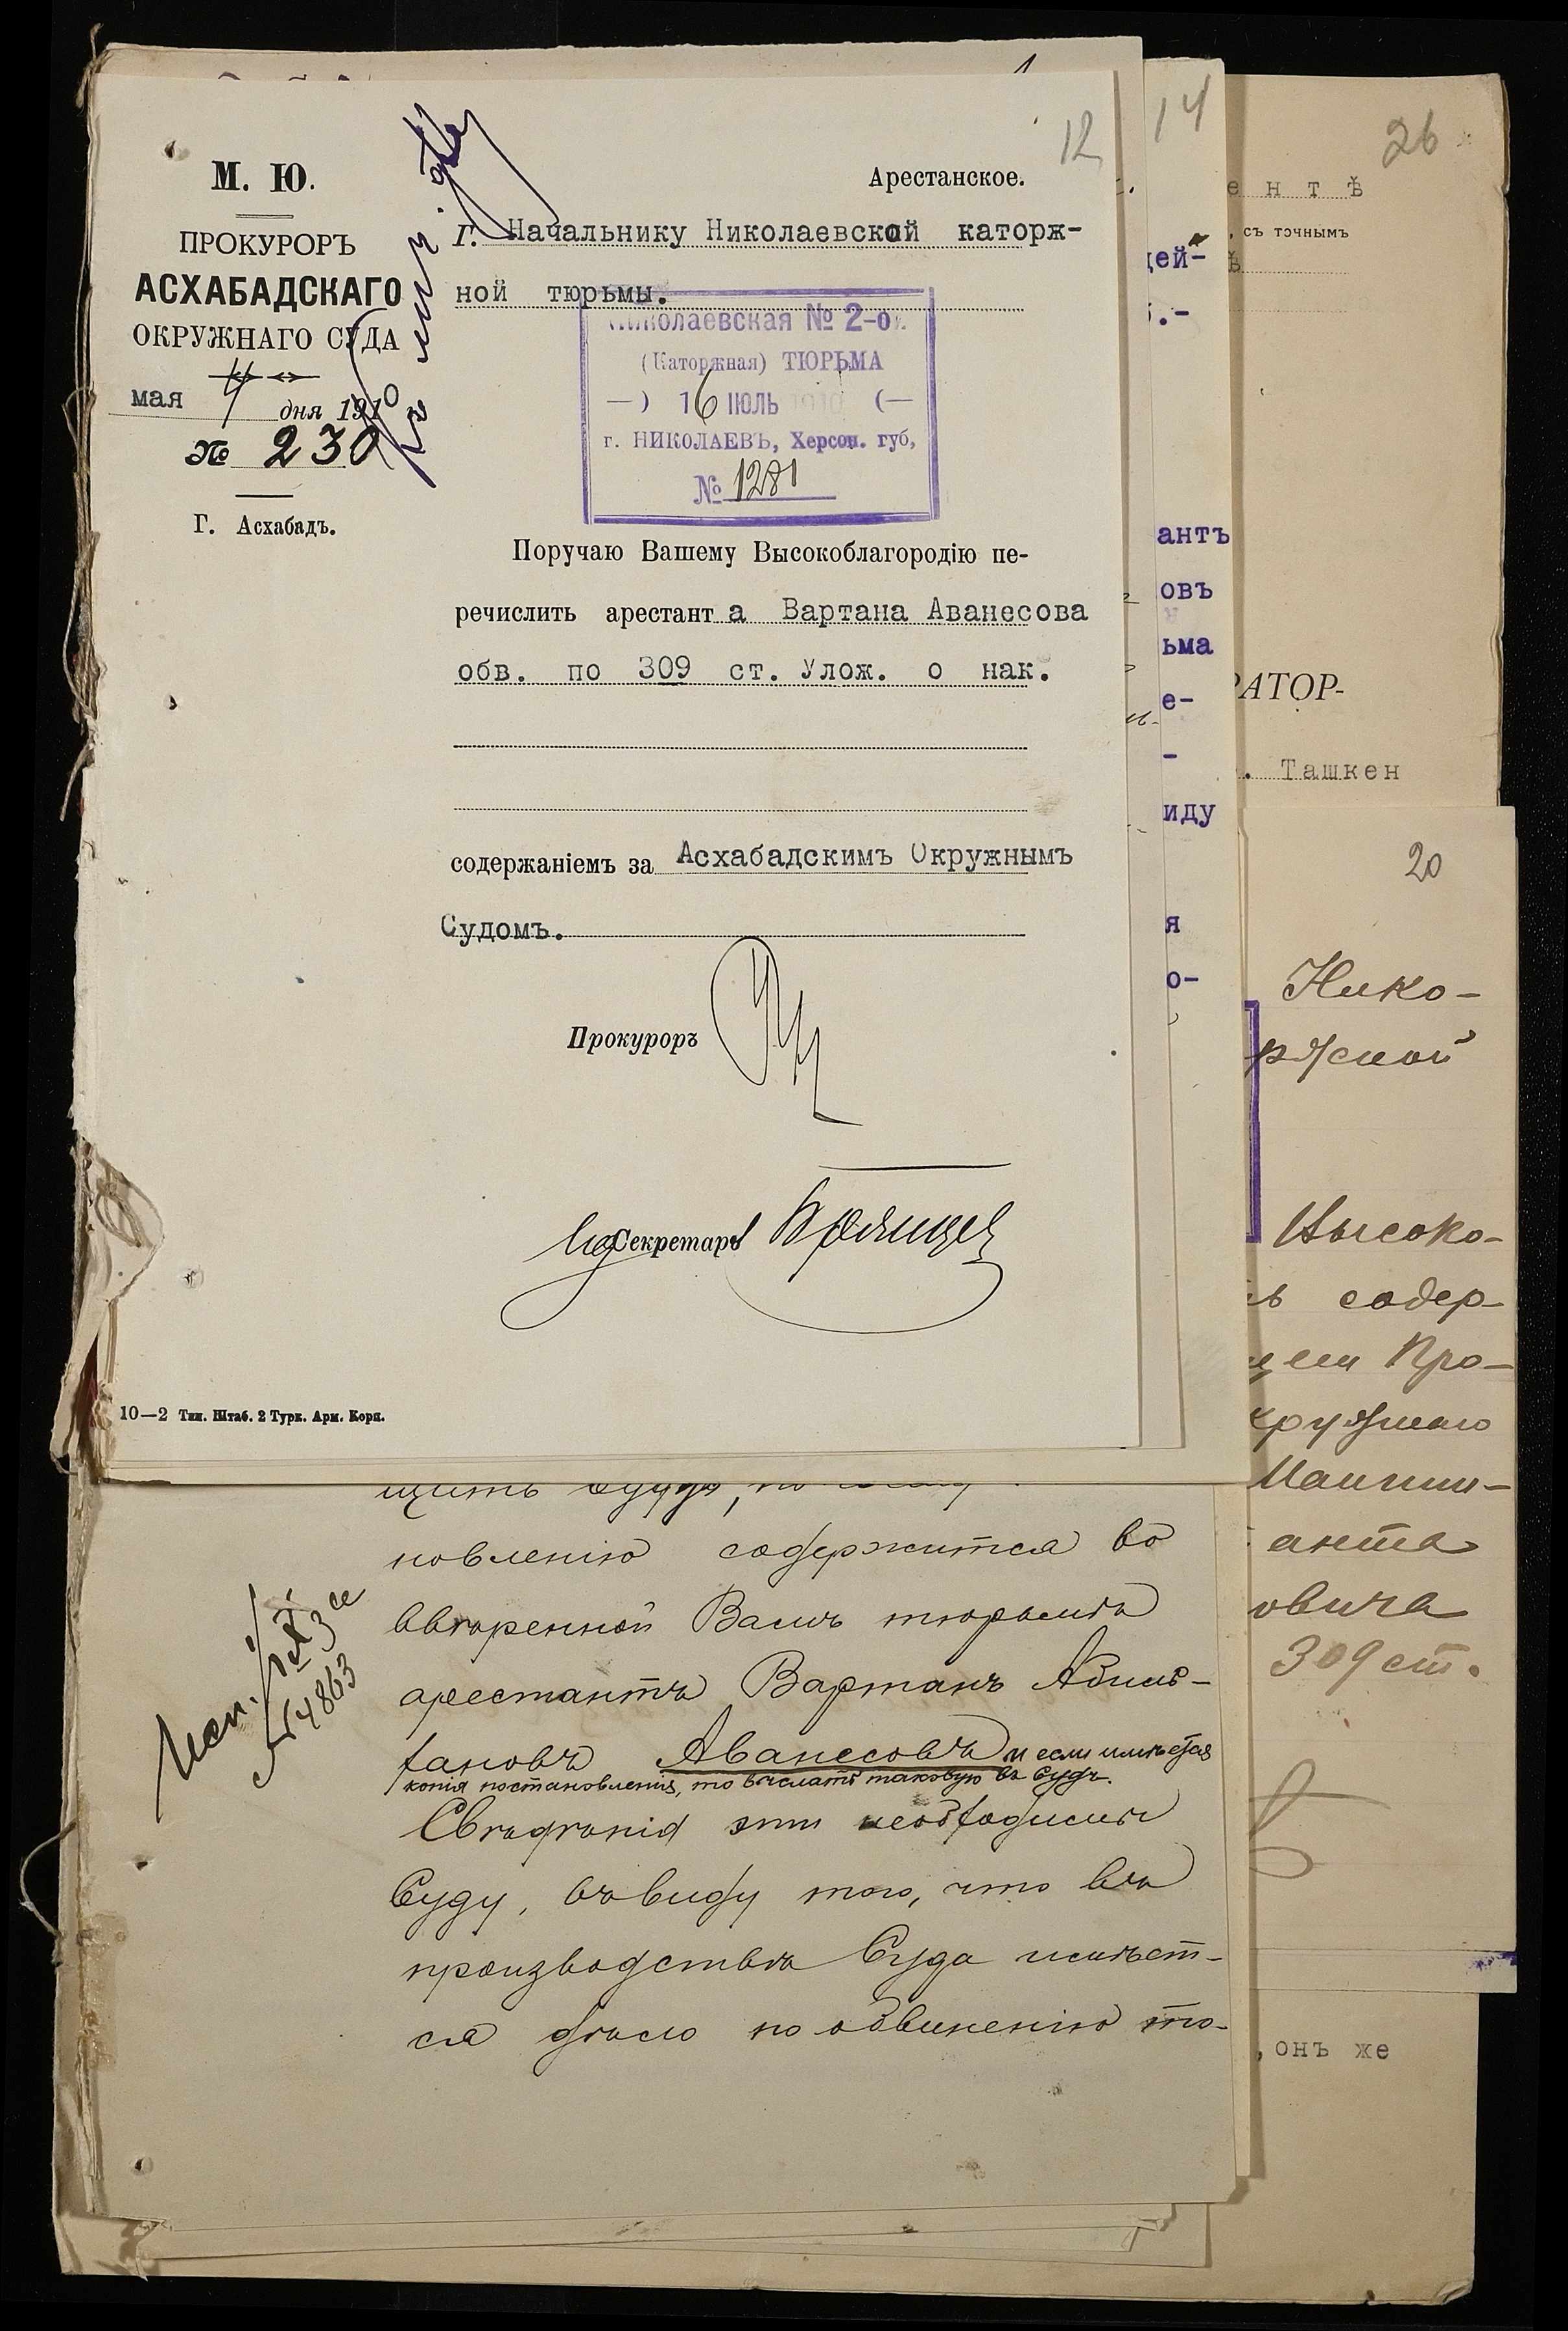 12
М. Ю.
ПРОКУРОРЪ
АСХАБАДСКАГО
ОКРУЖНАГО СУДА
мая 4 дня 1910
№ 230
Г. Асхабадъ.
Арестанское.
Г. Начальнику Николаевской каторж-
ной тюрьмы.
Николаевская № 2-ой
(Каторжная) ТЮРЬМА
—) 16 ІЮЛЬ 1910 (—
г. НИКОЛАЕВЪ, Херсон. губ,
№ 1281
Поручаю Вашему Высокоблагородію пе-
речислить арестант а Вартана Аванесова
обв. по 309 ст. Улож. о нак.
содержаніемъ за Асхабадскимъ Окружнымъ
Судомъ.
Прокуроръ
Секретарь
10—2 Тип. Штаб. 2 Турк. Арм. Корп.
14
цей-
антъ
овъ
ьма
е-
-
иду
я
о-
26
е н т ѣ
, съ точнымъ
РАТОР-
. Ташкен
20
Нико-
ржной
Высоко-
ь содер-
Про-
кружнаго
анта
овича
309 ст.
, онъ же
новленію содержится во
ввѣренной Вамъ тюрьмѣ
арестантъ Вартанъ
Аванесовъ и если имѣется
копія постановленія, то выслать таковую въ Судъ.
Свѣдѣнія эти необходимы
Суду, въ виду того, что въ
производствѣ Суда имѣет-
ся дѣло по обвиненію то-
Исп.
№ 4863